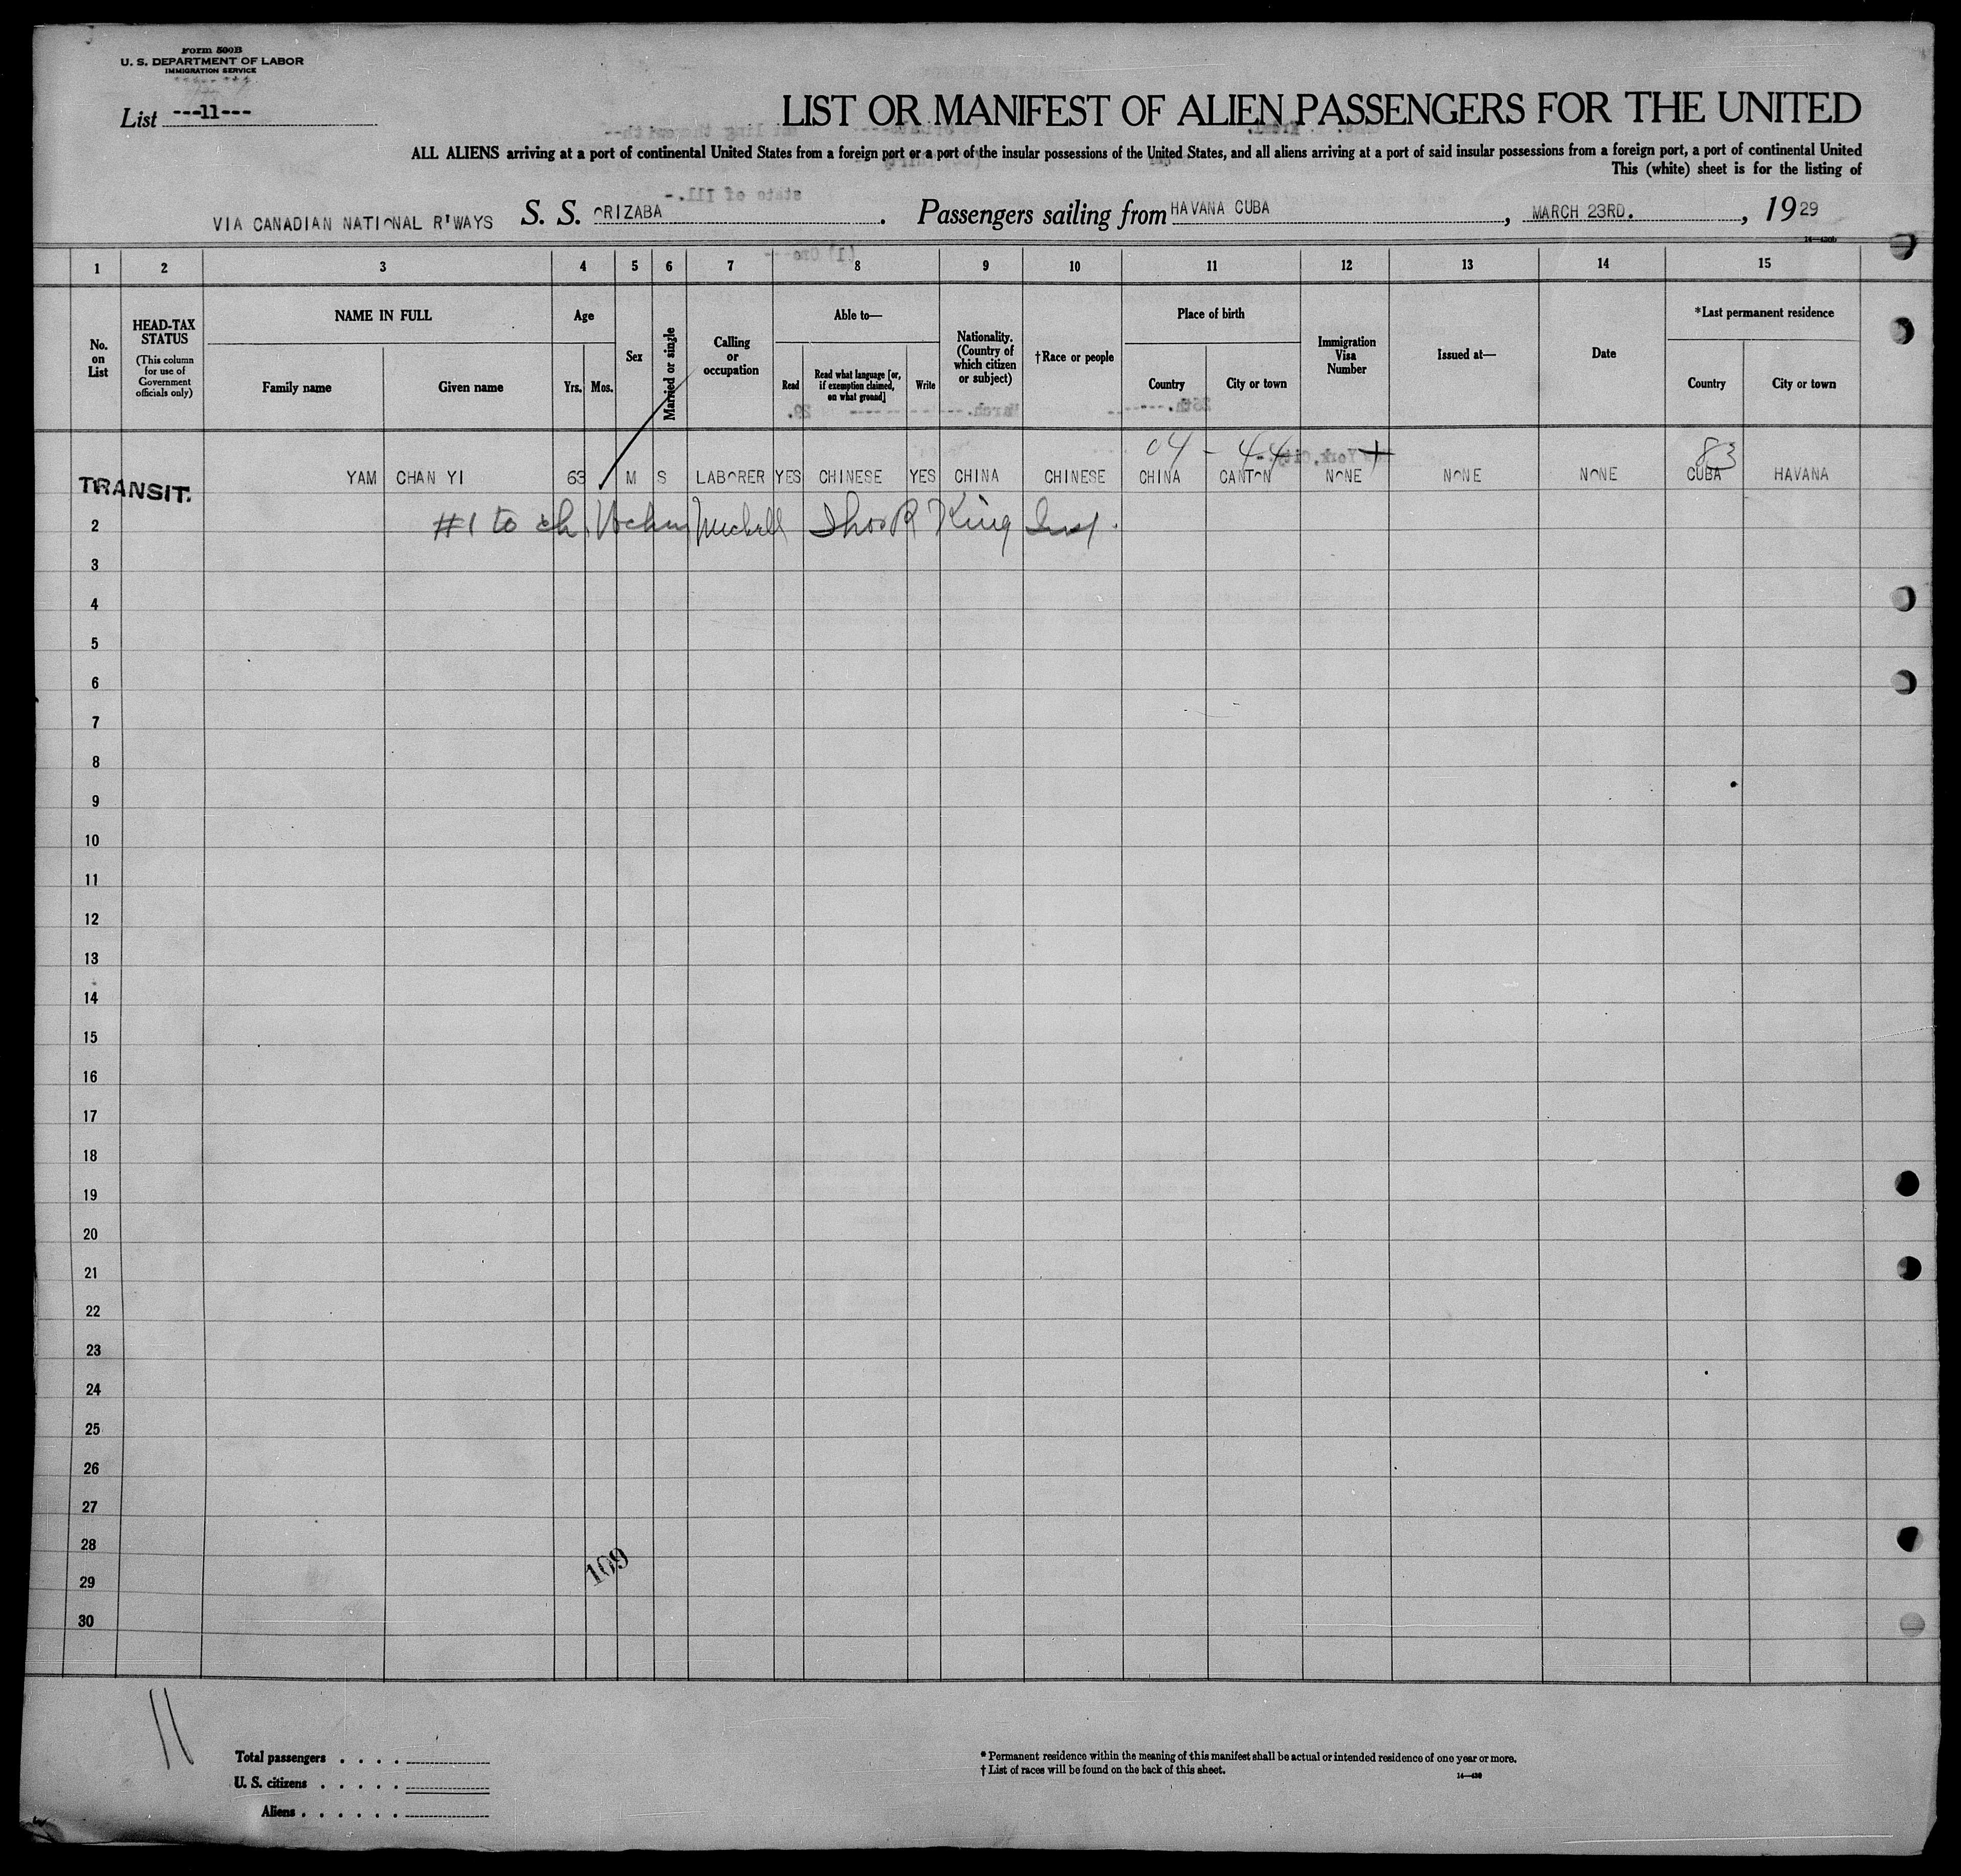 Form 500B
U. S. DEPARTMENT OF LABOR
IMMIGRATION SERVICE
List ---11---
LIST OR MANIFEST OF ALIEN PASSENGERS FOR THE UNITED
ALL ALIENS arriving at a port of continental United States from a foreign port or a port of the insular possessions of the United States, and all aliens arriving at a port of said insular possessions from a foreign port, a port of continental United
This (white) sheet is for the listing of
VIA CANADIAN NATIONAL R'WAYS S. S. ORIZABA . Passengers sailing from HAVANA CUBA , MARCH 23RD. , 1929
1 2 3 4 5 6 7 8 9 10 11 12 13 14 15
No. on List
HEAD-TAX STATUS
(This column for use of Government officials only)
NAME IN FULL
Family name Given name
Age
Yrs. Mos.
Sex
Married or single
Calling or occupation
Able to—
Read
Read what language [or, if exemption claimed, on what ground]
Write
Nationality. (Country of which citizen or subject)
†Race or people
Place of birth
Country City or town
Immigration Visa Number
Issued at—
Date
*Last permanent residence
Country City or town
04 - 44 + 83
TRANSIT. YAM CHAN YI 63 M S LABORER YES CHINESE YES CHINA CHINESE CHINA CANTON NONE NONE NONE CUBA HAVANA
2 #1 to ch Thos R King Insp.
3
4
5
6
7
8
9
10
11
12
13
14
15
16
17
18
19
20
21
22
23
24
25
26
27
28
109
29
30
11
Total passengers . . . .
U. S. citizens . . . . .
Aliens . . . . . .
* Permanent residence within the meaning of this manifest shall be actual or intended residence of one year or more.
† List of races will be found on the back of this sheet.